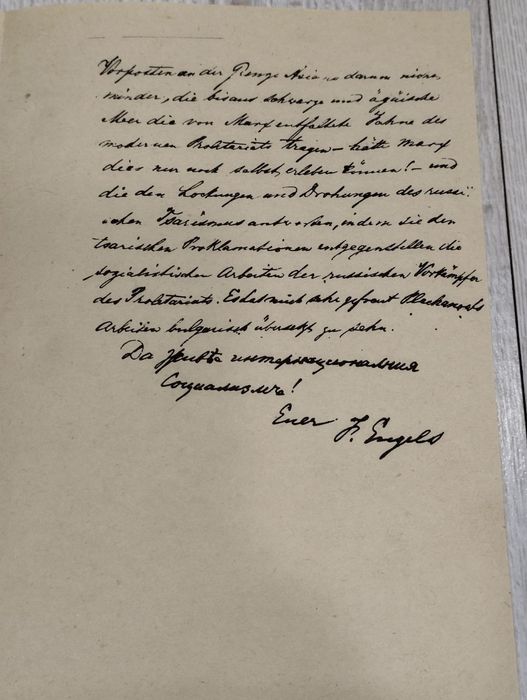 Vorposten an der Grenze Asiens darum nicht
minder, die bis ans schwarze und ägäische
Meer die von Marx entfaltete Fahne des
modernen Proletariats tragen – hätte Marx
dies nur noch selbst erleben können! – und
die den Lockungen und Drohungen des russi
schen Tsarismus antworten, indem sie den
tsarischen Proklamationen entgegenstellen die
sozialistischen Arbeiten der russischen Vorkämpfer
des Proletariats. Es hat mich sehr gefreut Plechanoffs
Arbeiten bulgarisch übersetzt zu sehn.
Да живѣе интернационалния
Социализмъ!
Euer F. Engels